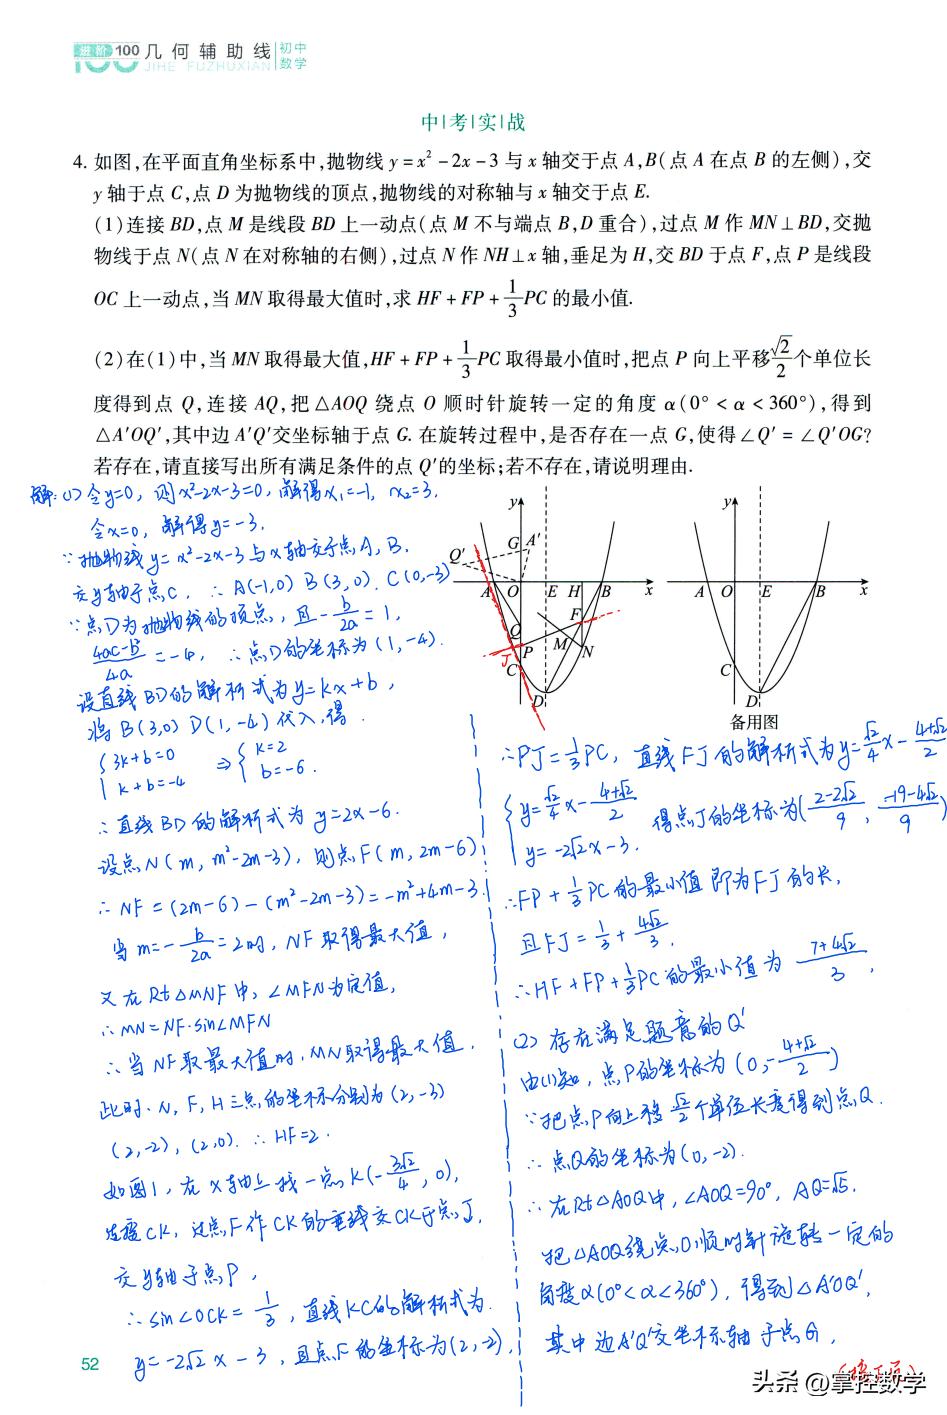 进阶100 几何辅助线 初中数学
JIHE FUZHUXIAN
中考实战
4. 如图,在平面直角坐标系中,抛物线 y = x² - 2x - 3 与 x 轴交于点 A,B(点 A 在点 B 的左侧),交
y 轴于点 C,点 D 为抛物线的顶点,抛物线的对称轴与 x 轴交于点 E.
(1)连接 BD,点 M 是线段 BD 上一动点(点 M 不与端点 B,D 重合),过点 M 作 MN⊥BD,交抛
物线于点 N(点 N 在对称轴的右侧),过点 N 作 NH⊥x 轴,垂足为 H,交 BD 于点 F,点 P 是线段
OC 上一动点,当 MN 取得最大值时,求 HF + FP + 1/3 PC 的最小值.
(2)在(1)中,当 MN 取得最大值,HF + FP + 1/3 PC 取得最小值时,把点 P 向上平移 √2/2 个单位长
度得到点 Q,连接 AQ,把 △AOQ 绕点 O 顺时针旋转一定的角度 α(0° < α < 360°),得到
△A'OQ',其中边 A'Q'交坐标轴于点 G. 在旋转过程中,是否存在一点 G,使得 ∠Q' = ∠Q'OG?
若存在,请直接写出所有满足条件的点 Q'的坐标;若不存在,请说明理由.
解:(1) 令y=0, 则x²-2x-3=0, 解得x₁=-1, x₂=3.
令x=0, 解得y=-3.
∵抛物线y=x²-2x-3与x轴交于点A,B.
交y轴于点C, ∴A(-1,0) B(3,0). C(0,-3)
∵点D为抛物线的顶点, 且-b/2a=1,
4ac-b²/4a=-4, ∴点D的坐标为(1,-4).
设直线BD的解析式为y=kx+b,
将B(3,0) D(1,-4)代入,得.
{3k+b=0 k+b=-4 ⇒ {k=2 b=-6.
∴直线BD的解析式为y=2x-6.
设点N(m, m²-2m-3), 则点F(m, 2m-6)
∴NF=(2m-6)-(m²-2m-3)=-m²+4m-3
当m=-b/2a=2时, NF取得最大值,
又在Rt△MNF中, ∠MFN为定值,
∴MN=NF·sin∠MFN
∴当NF取最大值时, MN取得最大值.
此时, N, F, H三点的坐标分别为(2,-3)
(2,-2), (2,0). ∴HF=2.
如图1, 在x轴上找一点K(-3√2/4, 0),
连接CK, 过点F作CK的垂线交CK于点J,
交y轴于点P,
∴sin∠OCK=1/3, 直线KC的解析式为.
y=-2√2x-3, 且点F的坐标为(2,-2),
y
Q'
G
A'
A
O
E
H
B
x
F
Q
P
M
N
J
C
D
y
A
O
E
B
x
C
D
备用图
∴PJ=1/3PC, 直线FJ的解析式为y=√2/4x-4+√2/2
{y=√2/4x-4+√2/2 y=-2√2x-3. 得点J的坐标为(2-2√2/9, -19-4√2/9)
∴FP+1/3PC的最小值即为FJ的长,
且FJ=1/3+4√2/3,
∴HF+FP+1/3PC的最小值为7+4√2/3,
(2)存在满足题意的Q'
由(1)知, 点P的坐标为(0,-4+√2/2)
∵把点P向上移√2/2个单位长度得到点Q.
∴点Q的坐标为(0,-2).
∴在Rt△AOQ中, ∠AOQ=90°, AQ=√5.
把△AOQ绕点O顺时针旋转一定的
角度α(0°<α<360°), 得到△A'OQ',
其中边A'Q'交坐标轴于点G,
(接下页)
52
头条 @掌控数学